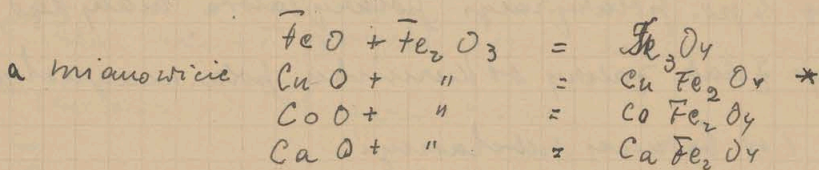 FeO + Fe₂O₃ = Fe₃O₄
a mianowicie CuO + " = CuFe₂O₄ *
CoO + " = CoFe₂O₄
CaO + " = CaFe₂O₄